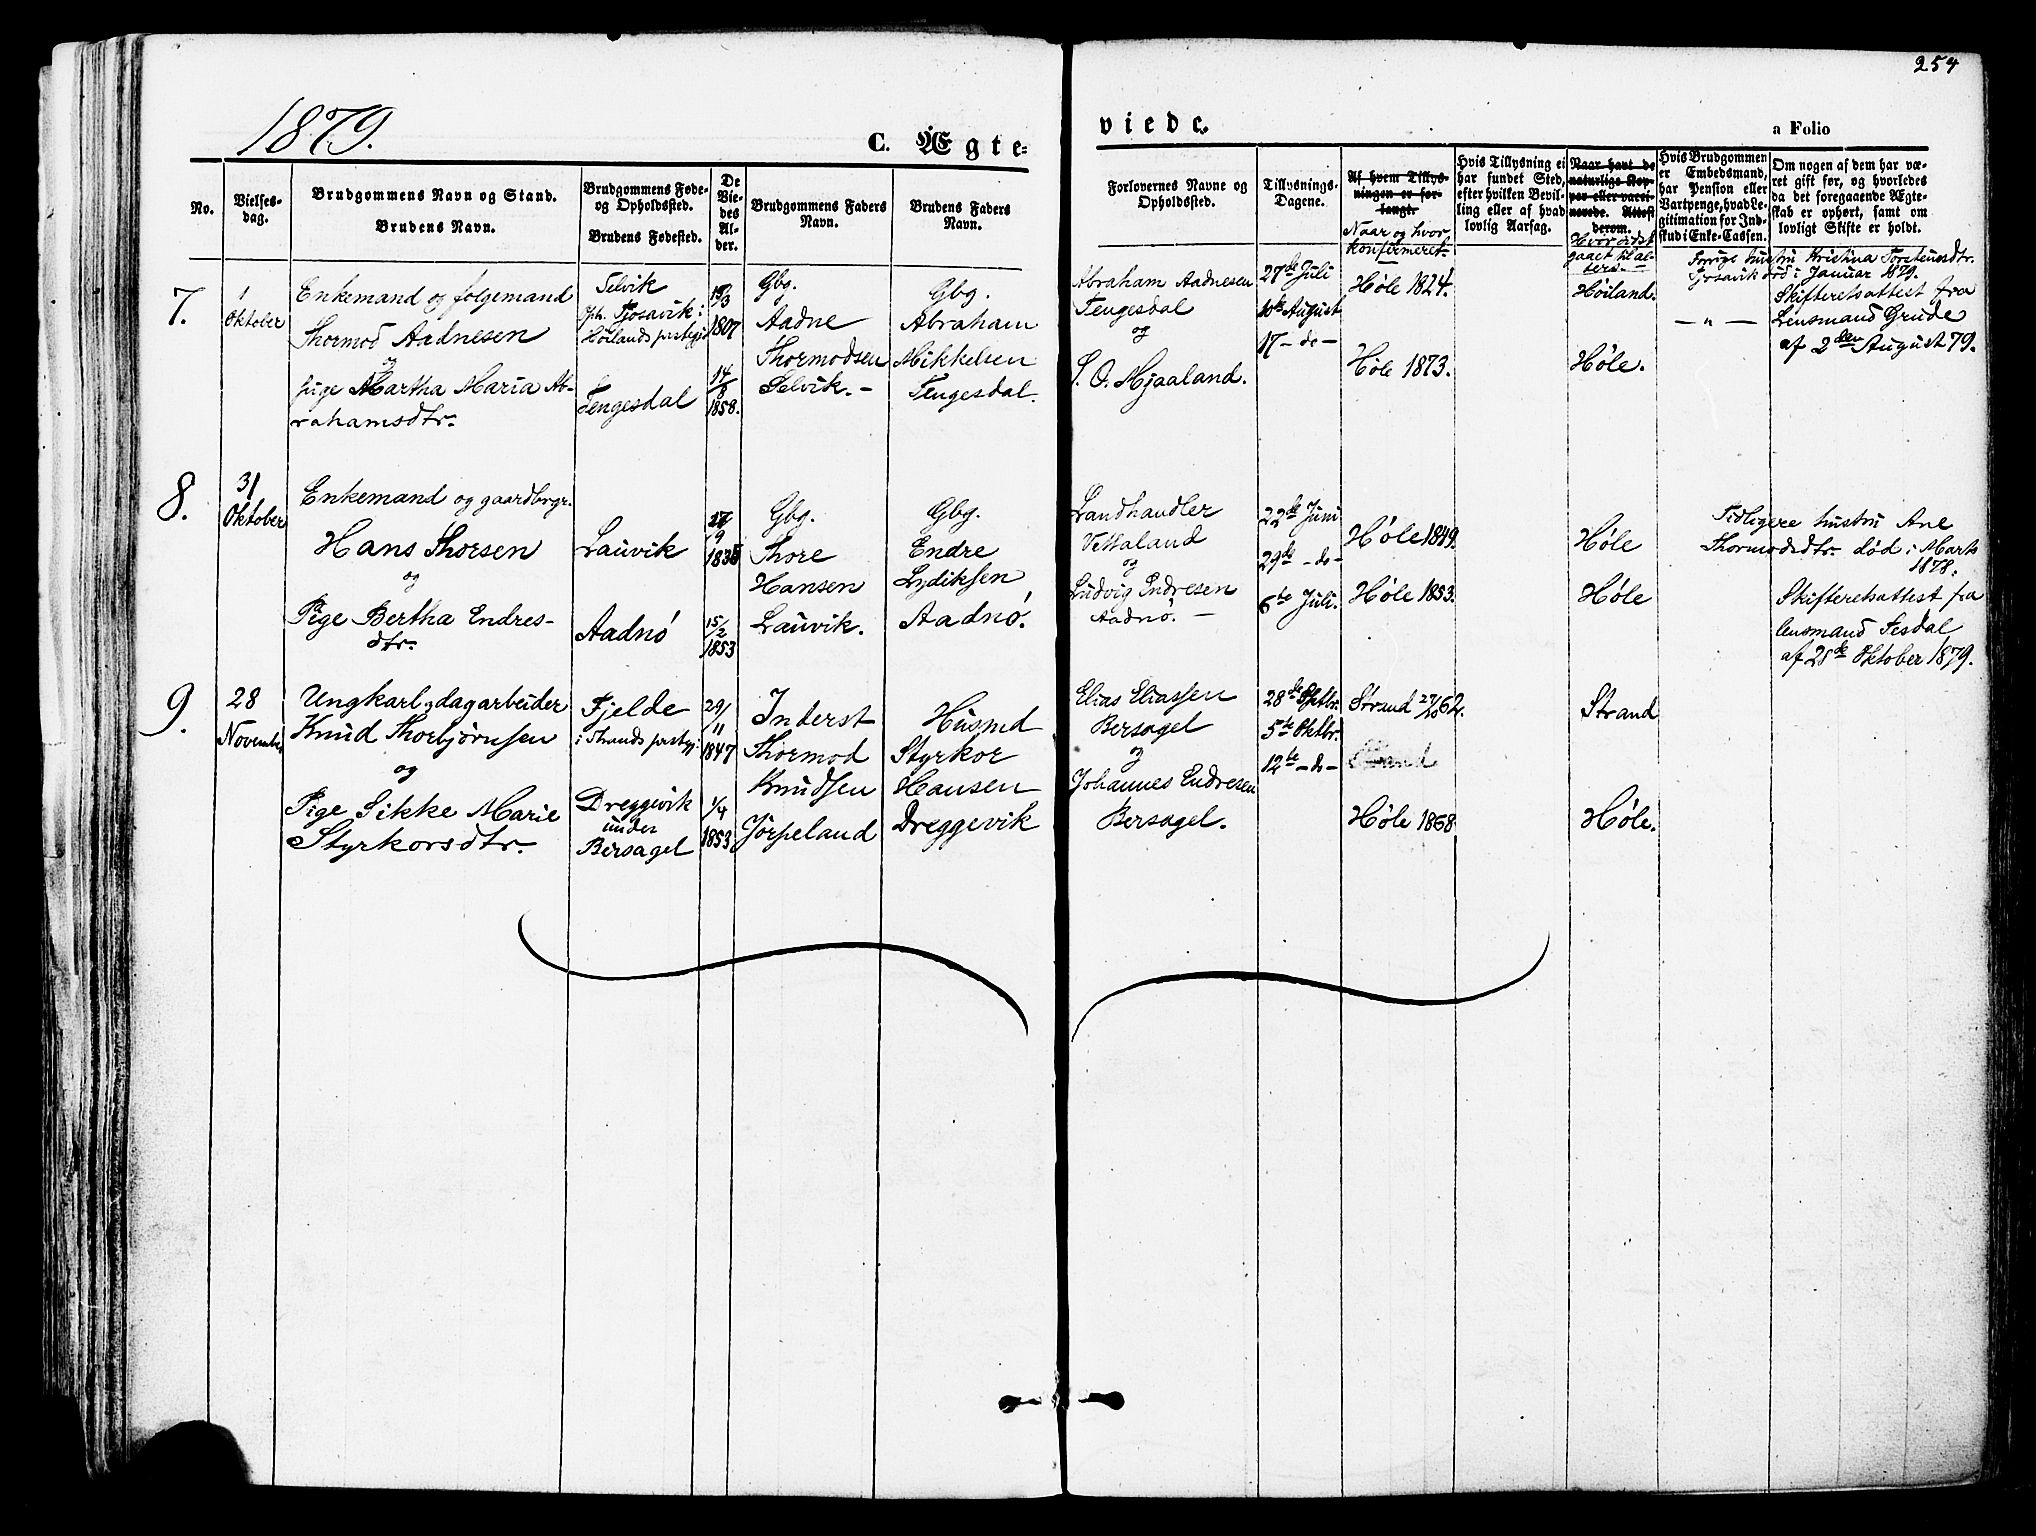 254
1879.
C. Ægte=
viede.
a Folio
No.
Vielses-
dag.
Brudgommens Navn og Stand.
Brudens Navn.
Brudgommens Føde-
og Opholdssted.
Brudens Fødested.
De
Vie-
des
Al-
der.
Brudgommens Faders
Navn.
Brudens Faders
Navn.
Forlovernes Navne og
Opholdssted.
Tillysnings-
Dagene.
Af hvem Tillys-
ningen er for-
langt.
Naar og hvor
konfirmeret.
Hvis Tillysning ei
har fundet Sted,
efter hvilken Bevil-
ling eller af hvad
lovlig Aarsag.
Naar havt de
naturlige Kop-
per eller vacci-
nerede. Attest
derom.
Hvor sidst
gaaet til al-
ters.
Hvis Brudgommen
er Embedsmand,
har Pension eller
Vartpenge, hvad Le-
gitimation for Ind-
skud i Enke-Cassen.
Om nogen af dem har væ-
ret gift før, og hvorledes
da det foregaaende Ægte-
skab er ophørt, samt om
lovligt Skifte er holdt.
7.
1
Oktober
Enkemand og følgemand
Thormod Aadnesen
og
pige Martha Maria Ab-
rahamsdtr.
Selvik
Oph. Tjosavik i
Høilands prstgj.
Tengesdal
19/3
1807
14/8
1858.
Gbg.
Aadne
Thormodsen
Selvik. -
Gbg.
Abraham
Mikkelsen
Tengesdal.
Abraham Aadnesen
Tengesdal
og
S. O. Mjaaland.
27de Juli
10de August
17 - do -
Høle 1824.
Høle 1873.
Høiland.
Høle.
- " -
Forrige hustru Kristina Torsteinsdtr.
Tjosavik død i Januar 1879.
Skifteretsattest fra
Lensmand Grude
af 2den August 79.
8.
31
Oktober
Enkemand og gaardbrgr.
Hans Thorsen
og
Pige Bertha Endres-
dtr.
Lauvik
Aadnö
9
15/2
1853
Gbg.
Thore
Hansen
Lauvik.
Gbg.
Endre
Lydiksen
Aadnö.
Landhandler
Vettaland
og
Ludvig Endresen
Aadnö. -
22de Juni
29de - do -
6te Juli.
Høle 1849.
Høle 1853.
Høle
Høle
Tidligere hustru Ane
Thormodsdtr. død i Marts
1878.
Skifteretsattest fra
lensmand Tesdal
af 28de Oktober 1879.
9.
28
November
Ungkarl og dagarbeider
Knud Thorbjørnsen
og
Pige Sikke Marie
Styrkorsdtr.
Fjelde
i Strands prstgj.
Dreggevik
under
Bersagel
29/11
1847
1/4
1853
Inderst
Thormod
Knudsen
Jørpeland
Husmd
Styrkor
Hansen
Dreggevik
Elias Eliassen
Bersagel
og
Johannes Endresen
Bersagel.
28de Septbr.
5te Oktbr.
12te - do -
Strand 27/10 62.
Høle 1868
Strand
Høle.